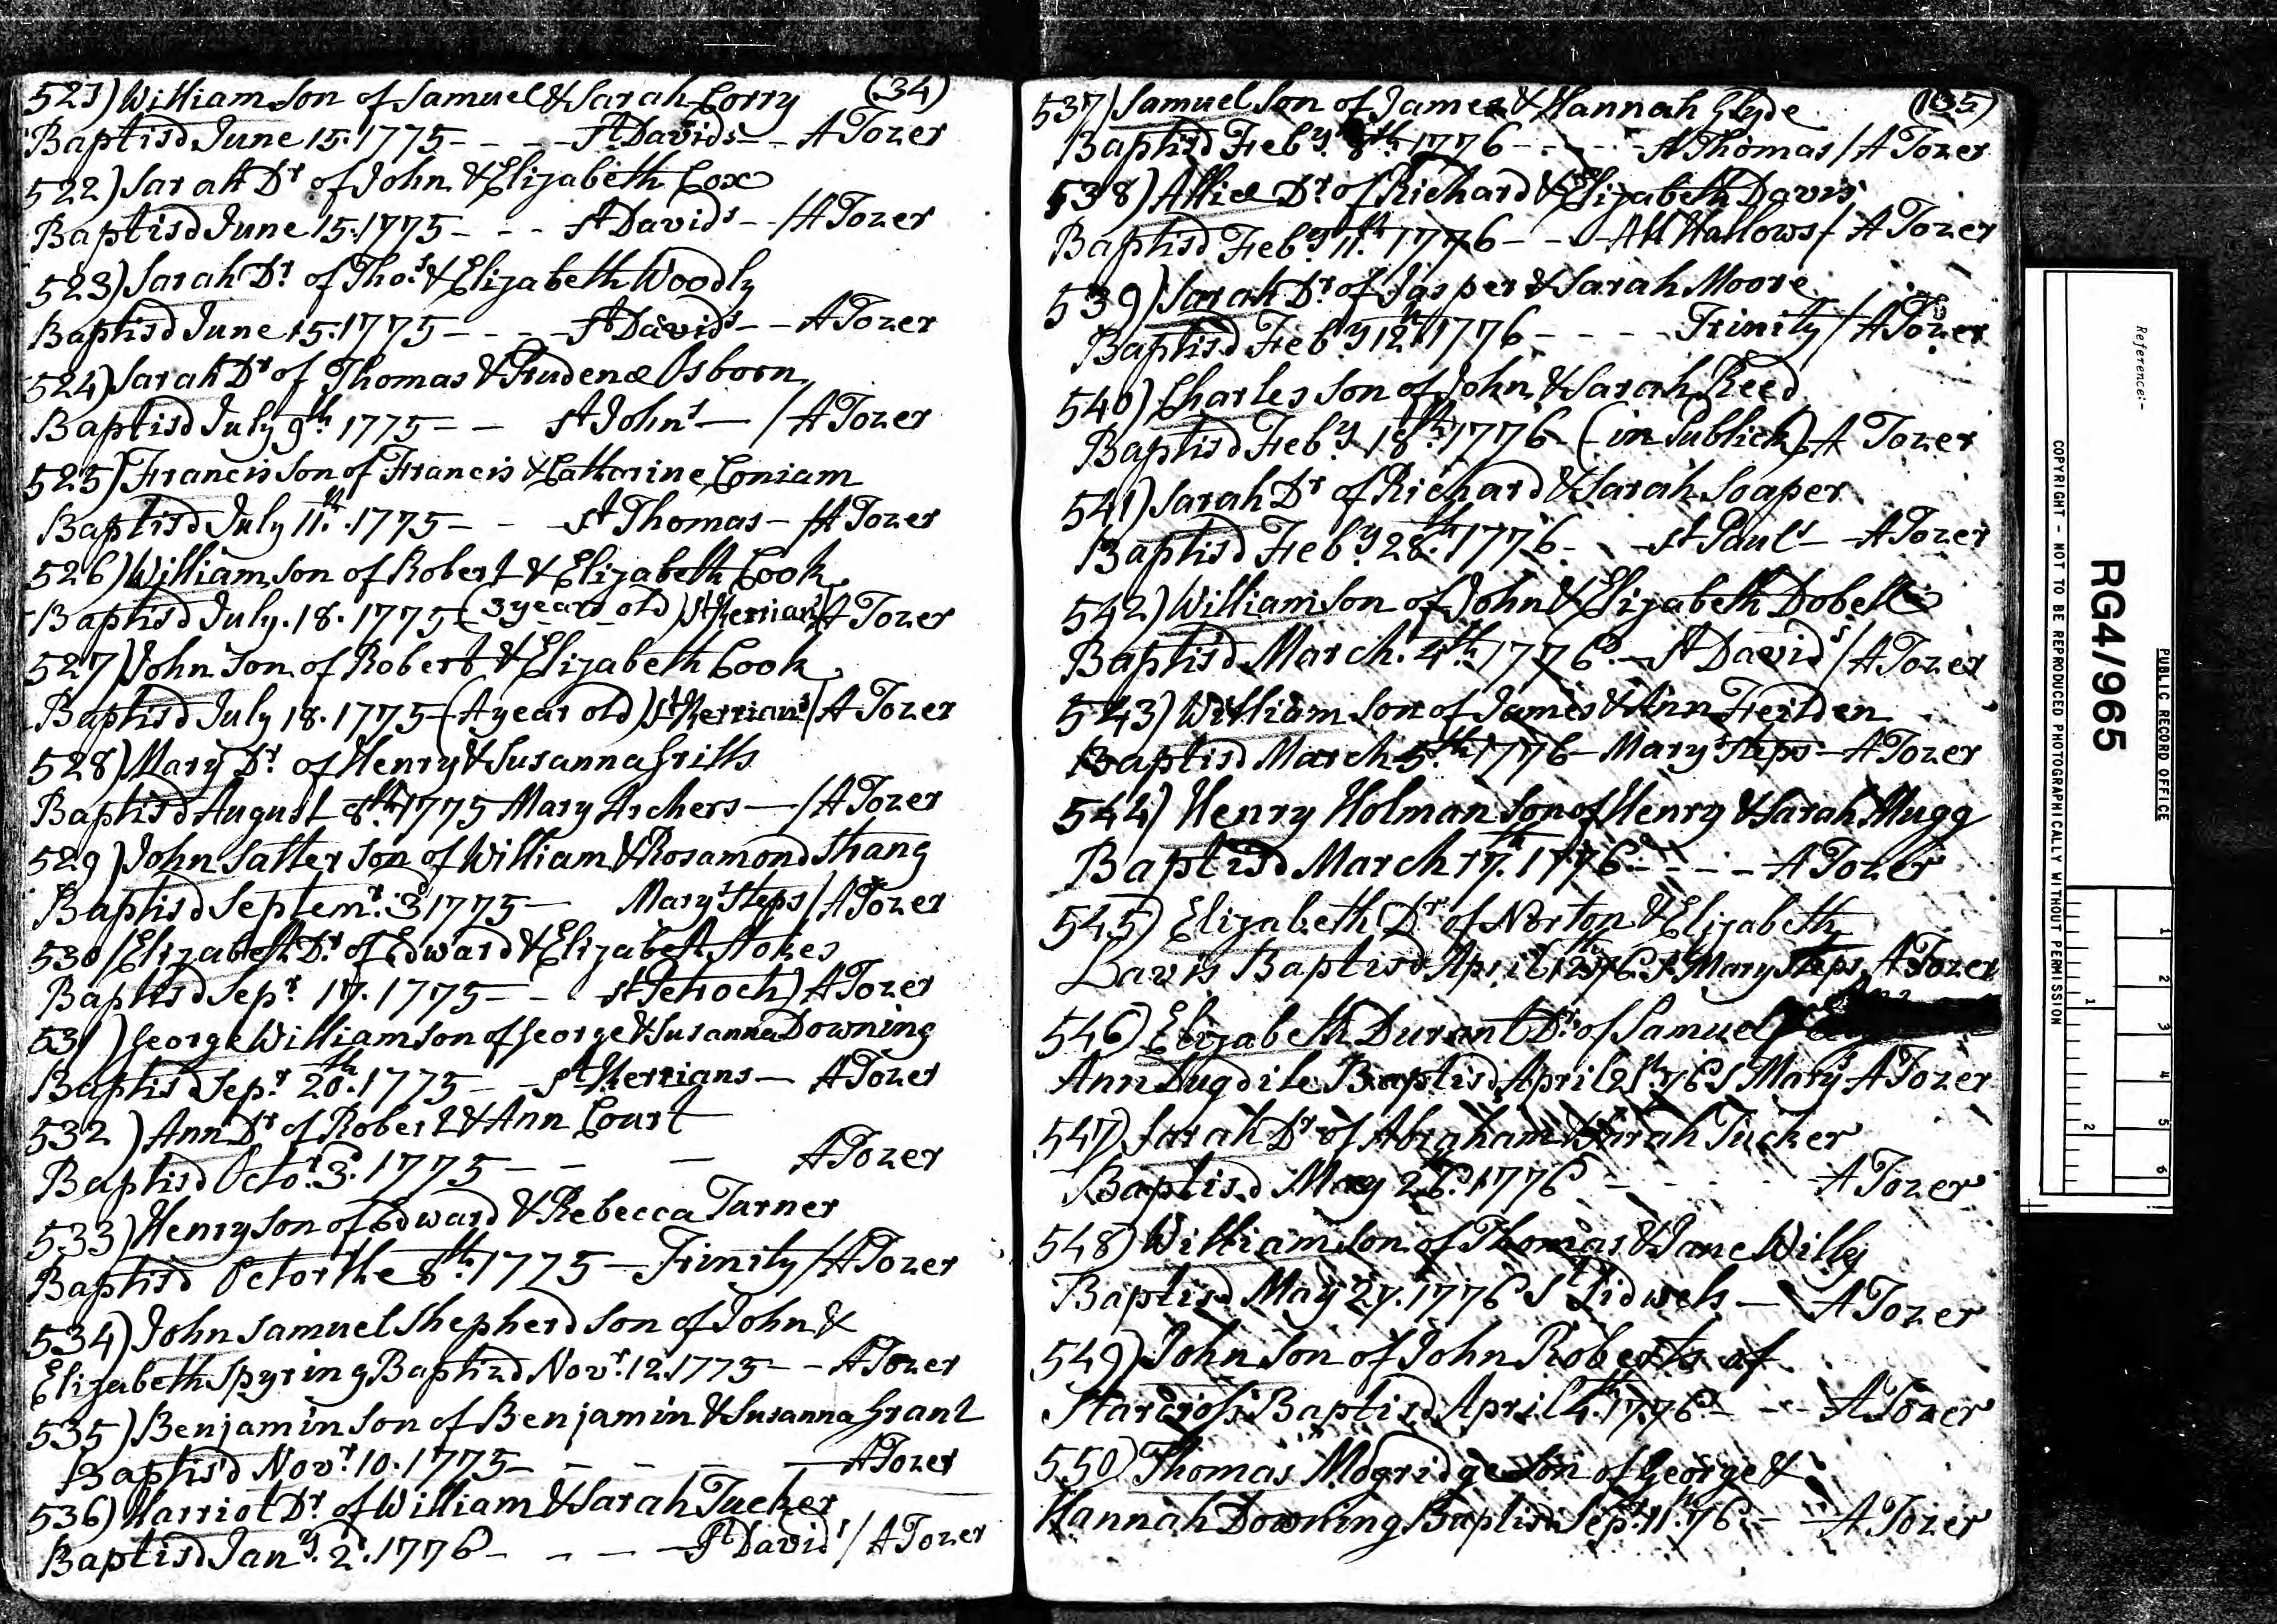 (34)
521) William Son of Samuel & Sarah Corry
Baptisd June 15. 1775 - - - St Davids - - A Tozer
522) Sarah Dr of John & Elizabeth Cox
Baptisd June 15. 1775 - - - St Davids - / A Tozer
523) Sarah Dr. of Thos. & Elizabeth Woodly
Baptisd June 15. 1775 - - - St Davids - - A Tozer
524) Sarah Dr of Thomas & Prudence Osborn
Baptisd July 9th 1775 - - St Johns - / A Tozer
525) Francis Son of Francis & Catharine Coniam
Baptisd July 11th. 1775 - - St Thomas - / A Tozer
526) William Son of Robert & Elizabeth Cook
Baptisd July. 18. 1775 - (3 years old) St Kerrians / A Tozer
527) John Son of Robert & Elizabeth Cook
Baptisd July 18. 1775 - (A year old) St Kerrians / A Tozer
528) Mary Dr. of Henry & Susanna Grills
Baptisd August 8th 1775 Mary Archers - / A Tozer
529) John Salter Son of William & Rosamond Shang
Baptisd Septemr. 3 1775 - Marys Steps / A Tozer
530) Elizabeth Dr. of Edward & Elizabeth Stokes
Baptisd Sepr. 17. 1775 - - St Petroch) A Tozer
531) George William Son of George & Susanna Downing
Baptisd Sepr. 20th. 1775 - - St Kerrians - A Tozer
532) Ann Dr of Robert & Ann Court
Baptisd Octor. 3. 1775 - - - A Tozer
533) Henry Son of Edward & Rebecca Turner
Baptisd Octor the 8th. 1775 - Trinity / A Tozer
534) John Samuel Shepherd Son of John &
Elizabeth Spyring Baptizd Novr. 12. 1775 - - A Tozer
535) Benjamin Son of Benjamin & Susanna Grant
Baptis'd Novr. 10. 1775 - - - - - A Tozer
536) Harriot Dr. of William & Sarah Tucker
Baptisd Jany. 2d. 1776 - - - - St Davids / A Tozer
(135)
537) Samuel Son of James & Hannah Glyde
Baptisd Feby. 8th. 1776 - - - - St Thomas / A Tozer
538) Allice Dr. of Richard & Elizabeth Davis
Baptisd Feby 11th. 1776 - - All Hallows / A Tozer
539) Sarah Dr. of Jasper & Sarah Moore
Baptisd Feby 12th 1776 - - - - Trinity / A Tozer
540) Charles Son of John & Sarah Reed
Baptisd Feby 18th. 1776 - (in Publick) A Tozer
541) Sarah Dr of Richard & Sarah Soaper
Baptisd Feby 28th. 1776 - - St Pauls - A Tozer
542) William Son of John & Elizabeth Dobell
Baptisd March. 4th. 1776. - St Davids / A Tozer
543) William Son of James & Ann Feilden
Baptisd March 5th. 1776 - Marys Steps - A Tozer
544) Henry Holman Son of Henry & Sarah Mugg
Baptisd March 17th. 1776 - - - - A Tozer
545) Elizabeth Dr. of Norton & Elizabeth
Davis Baptisd April 76 St Mary Steps A Tozer
546) Elizabeth Durant Dr. of Samuel
Ann Dugdile Baptisd April 21th. 76 S Marys A Tozer
547) Sarah Dr. of Abraham & Sarah Tucker
Baptisd May 26. 1776 - - - A Tozer
548) William Son of Thomas & Jane Willy
Baptisd May 27. 1776 St Sidwels - A Tozer
549) John Son of John Roberts of
Starcross Baptisd April 4th. 1776 - - - A Tozer
550) Thomas Mogridge Son of George &
Hannah Downing Baptisd Sepr. 11th. 76. - A Tozer
Reference:-
PUBLIC RECORD OFFICE
RG4/965
COPYRIGHT - NOT TO BE REPRODUCED PHOTOGRAPHICALLY WITHOUT PERMISSION
1 2 3 4 5 6
1 2